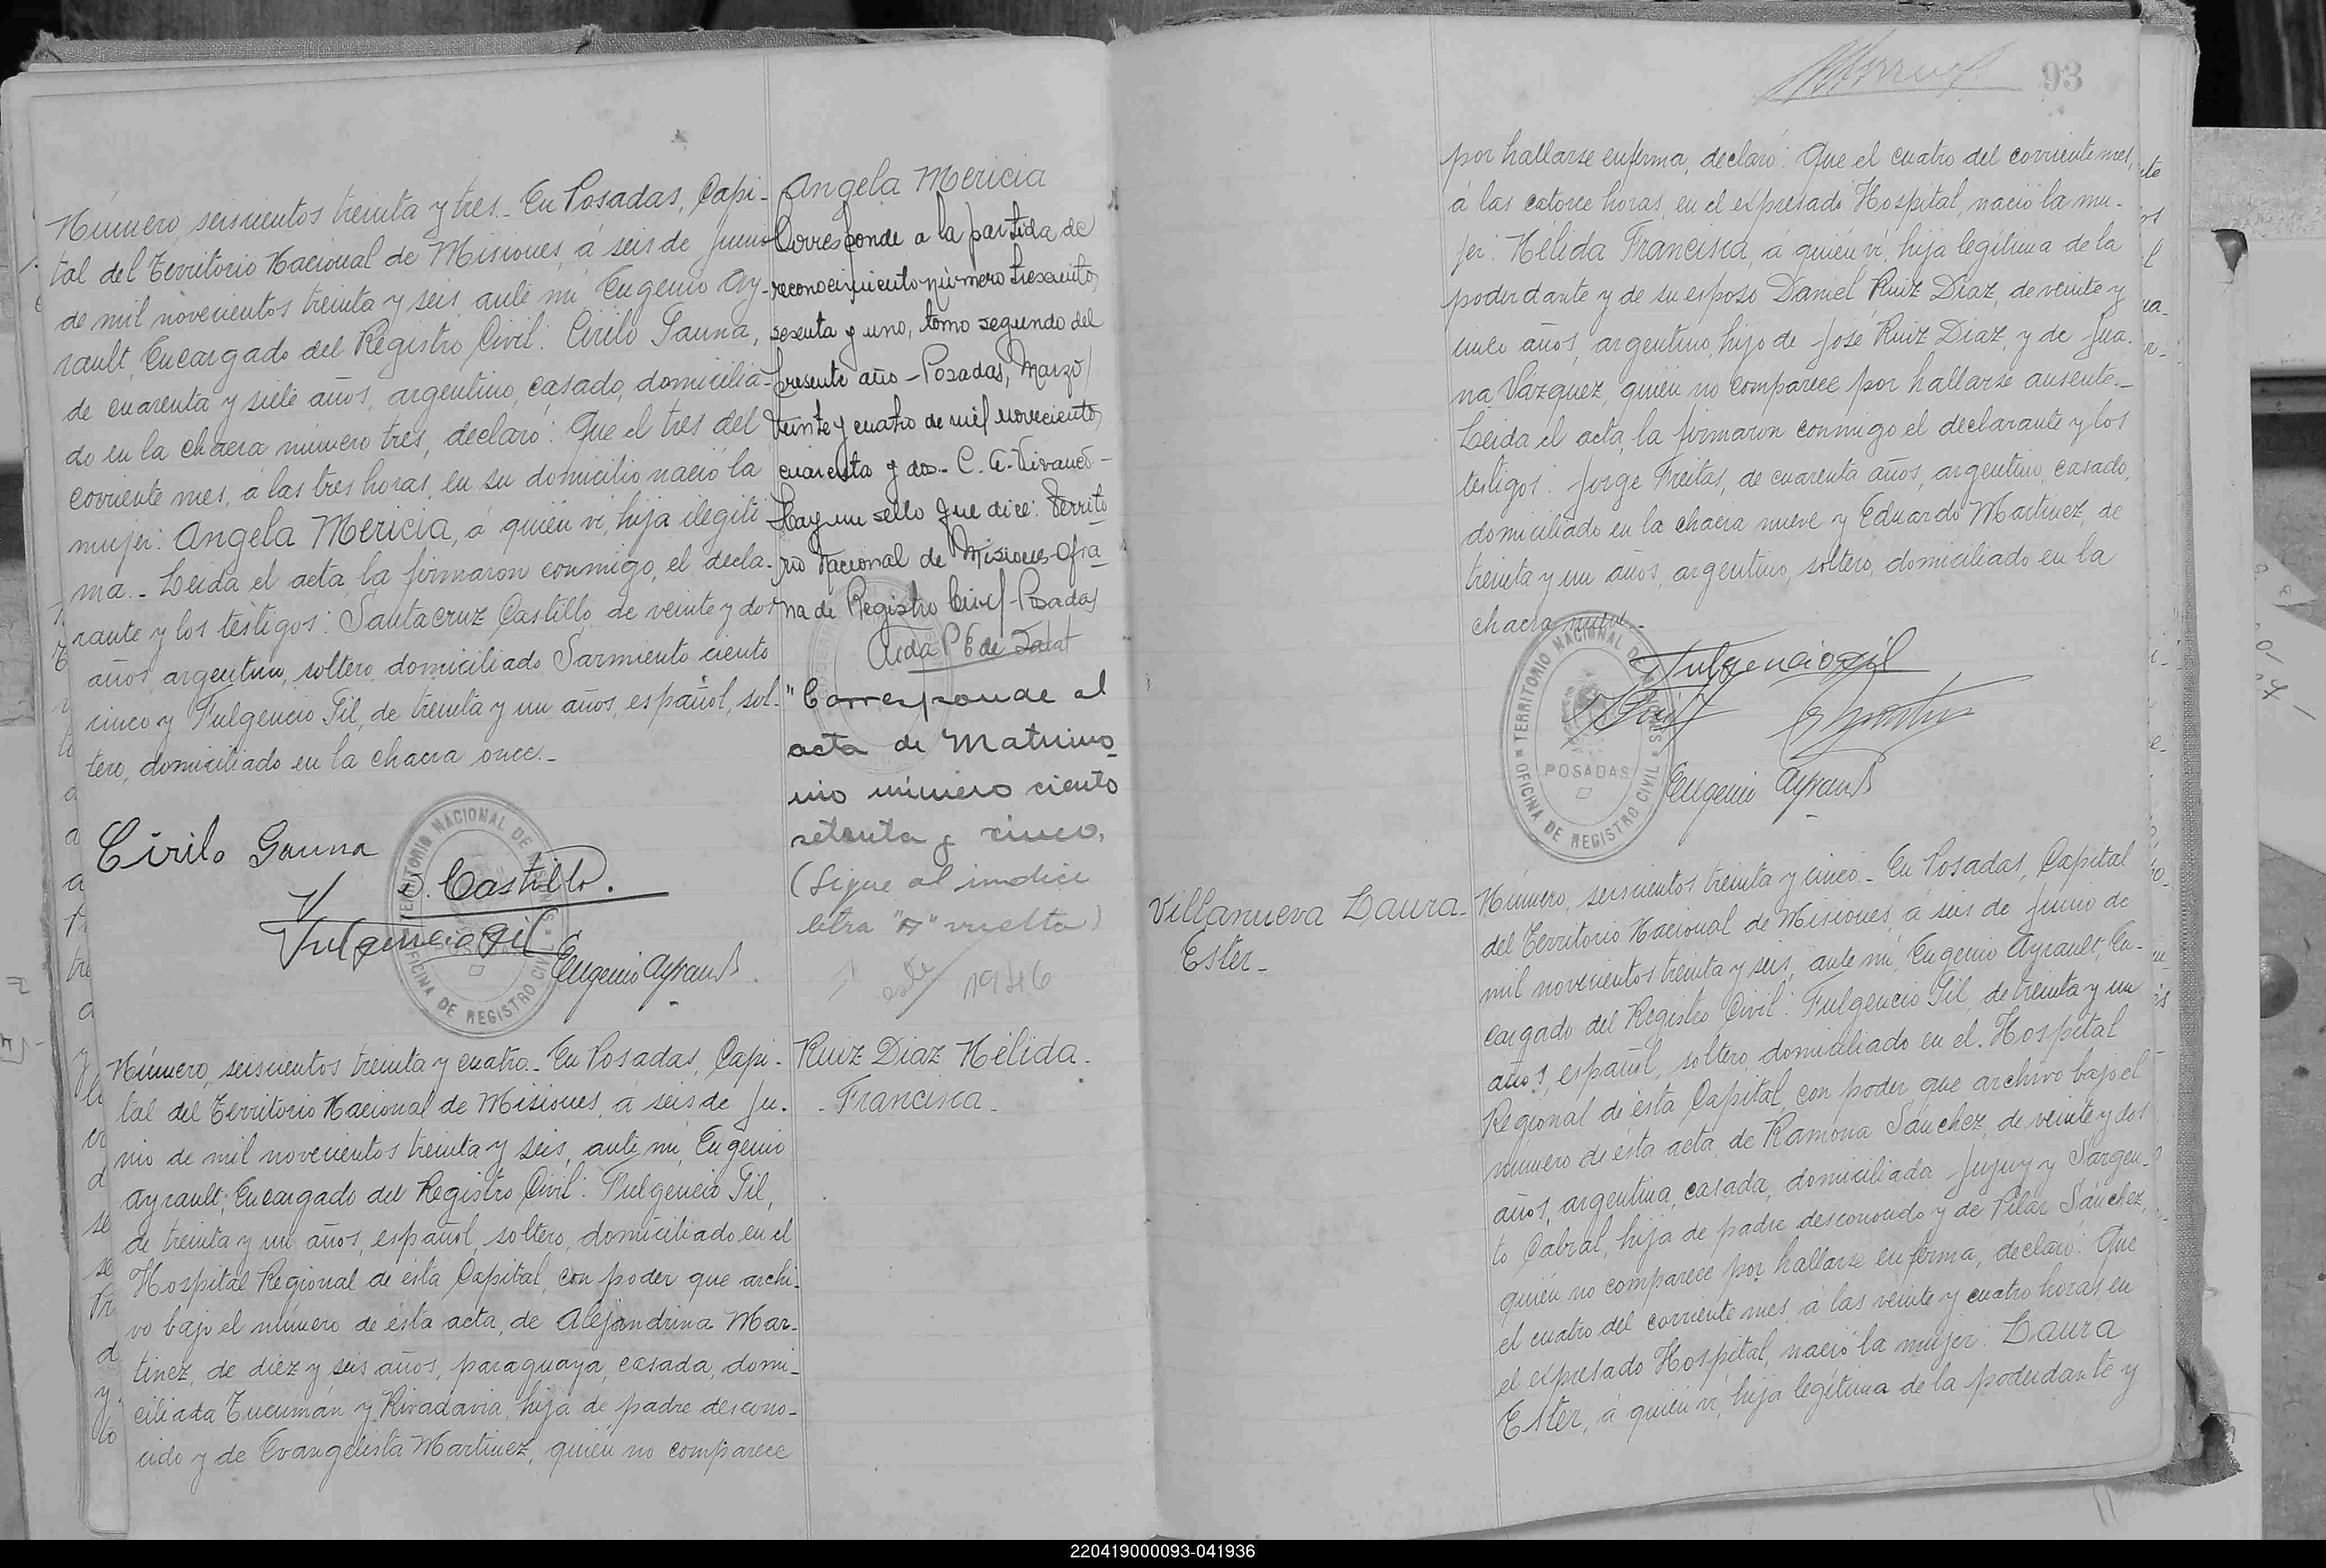 Número, seiscientos treinta y tres.- En Posadas, Capi-
tal del Territorio Nacional de Misiones, á seis de Junio
de mil novecientos treinta y seis, ante mí, Eugenio Ay-
rault, Encargado del Registro Civil: Cirilo Gauna,
de cuarenta y siete años, argentino, casado, domicilia-
do en la chacra número tres, declaró: Que el tres del
corriente mes, á las tres horas, en su domicilio nació la
mujer: Angela Mericia, á quién ví, hija ilegíti
ma.- Leida el acta, la firmaron conmigo, el decla-
rante y los testigos: Santacruz Castillo, de veinte y dos
años, argentino, soltero, domiciliado Sarmiento ciento
cinco y Fulgencio Gil, de treinta y un años, español, sol-
tero, domiciliado en la chacra once.-
Cirilo Gauna
S. Castillo.
Fulgencio Gil
Eugenio Ayrault
TERRITORIO NACIONAL DE MISIONES
OFICINA DE REGISTRO CIVIL
Angela Mericia
Corresponde a la partida de
reconocimiento número trescientos
sesenta y uno, tomo segundo del
presente año - Posadas, Marzo
veinte y cuatro de mil novecientos
cuarenta y dos.- C. A. Vivanco -
Hay un sello que dice: Territo
rio Nacional de Misiones-Ofici
na de Registro Civil-Posadas
Aida P. de
"Corresponde al
acta de Matrimo-
nio número ciento
setenta y cinco.
(Sigue al indice
letra "A" vuelta)
1946
Número, seiscientos treinta y cuatro.- En Posadas, Capi-
tal del Territorio Nacional de Misiones, á seis de Ju-
nio de mil novecientos treinta y seis, ante mí, Eugenio
Ayrault, Encargado del Registro Civil: Fulgencio Gil,
de treinta y un años, español, soltero, domiciliado en el
Hospital Regional de ésta Capital, con poder que archi-
vo bajo el número de ésta acta, de Alejandrina Mar-
tinez, de diez y seis años, paraguaya, casada, domi-
ciliada Tucumán y Rivadavia, hija de padre descono-
cido y de Evangelista Martinez, quién no comparece
Ruiz Diaz Nélida-
-Francisca-
93
por hallarse enferma, declaró: Que el cuatro del corriente mes,
á las catorce horas, en el expresado Hospital, nació la mu-
jer: Nélida Francisca, á quién ví, hija legítima de la
poderdante y de su esposo Daniel Ruiz Diaz, de veinte y
cinco años, argentino, hijo de José Ruiz Diaz, y de Jua-
na Vazquez, quién no comparece por hallarse ausente.-
Leida el acta, la firmaron conmigo el declarante y los
testigos: Jorge Freitas, de cuarenta años, argentino, casado,
domiciliado en la chacra nueve y Eduardo Martinez, de
treinta y un años, argentino, soltero, domiciliado en la
chacra nueve.-
Fulgencio Gil
Eugenio Ayrault
TERRITORIO NACIONAL DE MISIONES
POSADAS
OFICINA DE REGISTRO CIVIL
Villanueva Laura-
Ester-
Número, seiscientos treinta y cinco.- En Posadas, Capital
del Territorio Nacional de Misiones, á seis de Junio de
mil novecientos treinta y seis, ante mí, Eugenio Ayrault, En-
cargado del Registro Civil: Fulgencio Gil, de treinta y un
años, español, soltero, domiciliado en el Hospital
Regional de ésta Capital, con poder que archivo bajo el
número de ésta acta, de Ramona Sánchez, de veinte y dos
años, argentina, casada, domiciliada Jujuy y Sargen-
to Cabral, hija de padre desconocido y de Pilar Sánchez,
quién no comparece por hallarse enferma, declaró: Que
el cuatro del corriente mes, á las veinte y cuatro horas, en
el expresado Hospital, nació la mujer: Laura
Ester, á quién ví, hija legítima de la poderdante y
220419000093-041936